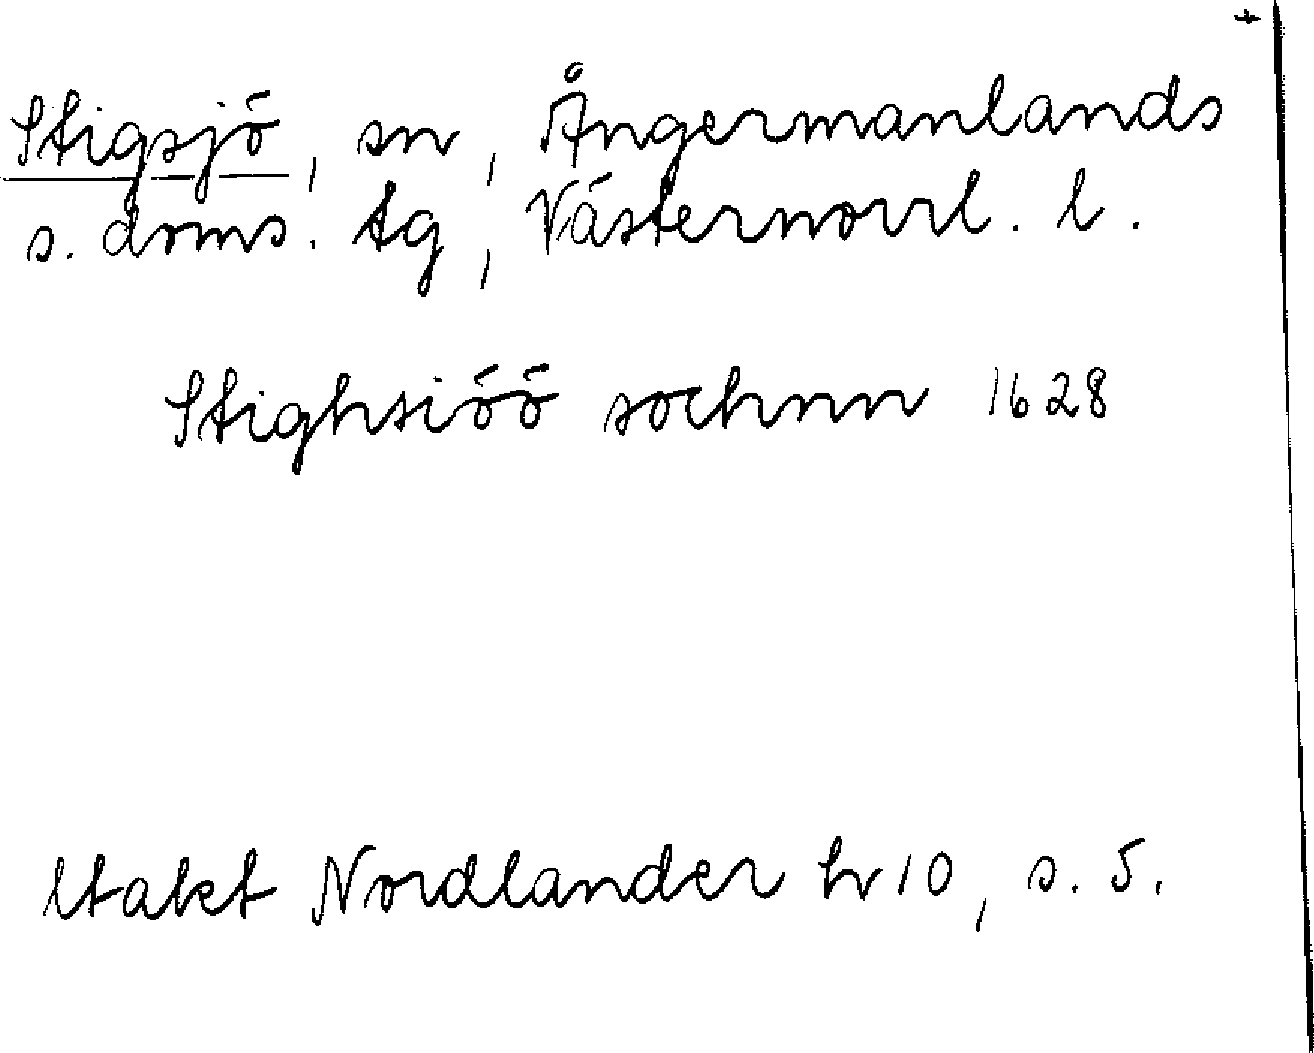 +
Stigsjö, sn, Ångermanlands
s. doms. tg, Västernorrl. l.
Stighsiöö sochnn 1628
Utaket Nordlander hv 10, s. 5.